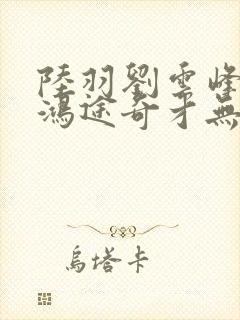 陸羽劉雲峰
鴻途奇才無
烏塔卡